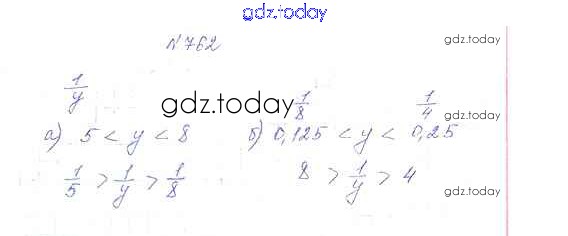 gdz.today
N762
gdz.today
1/y
gdz.today
1/8
1/4
gdz.today
а) 5 < y < 8
б) 0,125 < y < 0,25
1/5 > 1/y > 1/8
8 > 1/y > 4
gdz.today